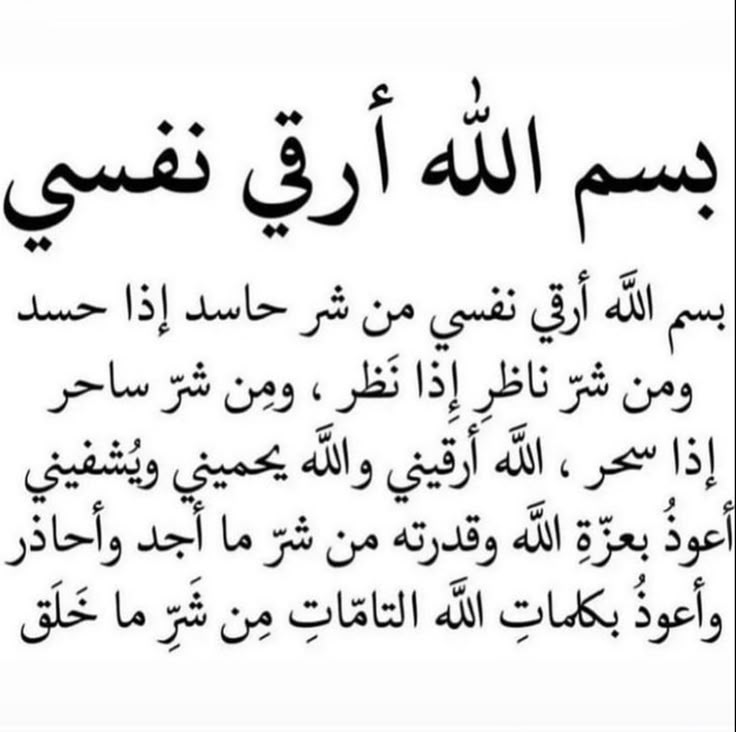 بسم الله أرقي نفسي
بسم اللَّه أرقي نفسي من شر حاسد إذا حسد
ومن شرّ ناظرِ إِذا نَظر ، ومِن شرّ ساحر
إذا سحر ، اللَّه أرقيني واللَّه يحميني ويُشفيني
أعوذُ بعزّةِ اللَّه وقدرته من شرّ ما أجد وأحاذر
وأعوذُ بكلماتِ اللَّه التامّاتِ مِن شَرِّ ما خَلَق